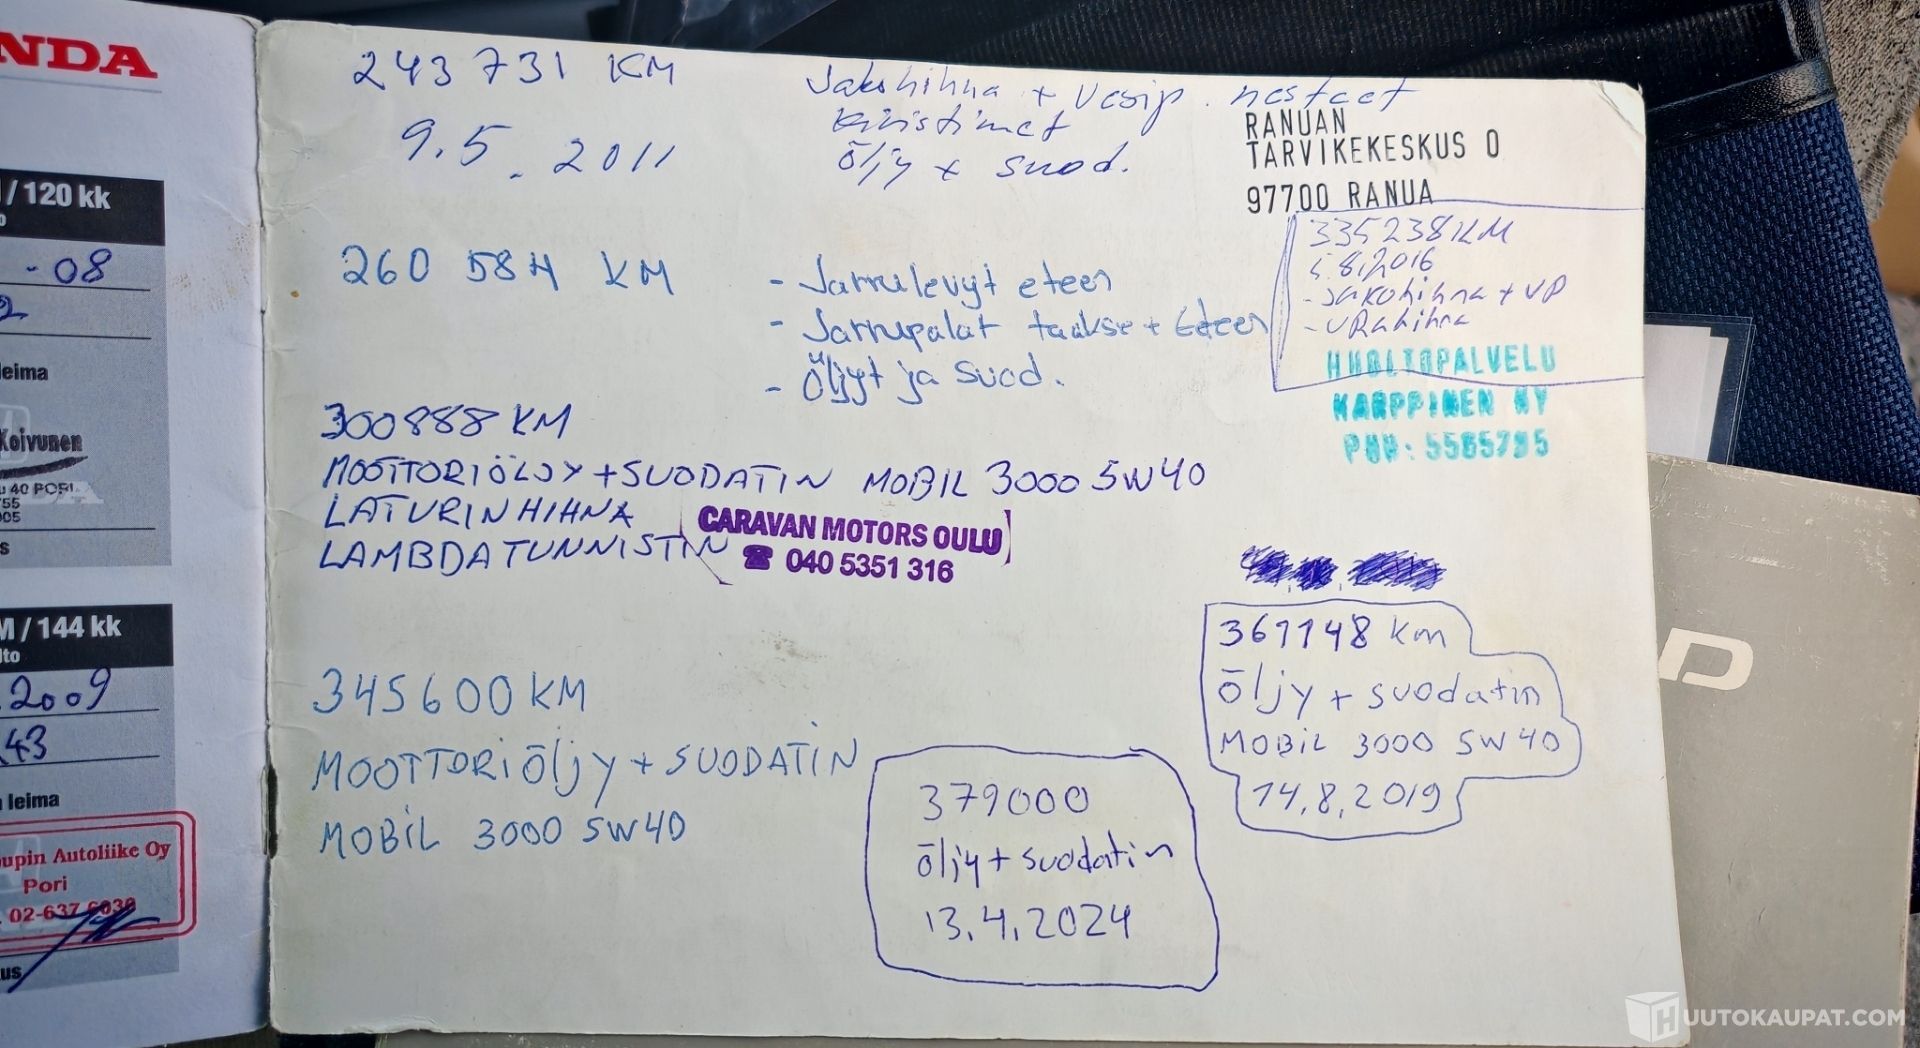 NDA
/ 120 kk
- 08
2
leima
Koivunen
40 PORI
55
05
s
M / 144 kk
lto
2009
43
leima
upin Autoliike Oy
Pori
02-637 6030
us
243 731 KM
9.5.2011
Jakohihna + Vesip. nesteet
Kiristimet
Öljy + suod.
RANUAN
TARVIKEKESKUS O
97700 RANUA
335238KM
5.8.2016
- JAKOHIHNA + VP
- URAHIHNA
HUOLTOPALVELU
KARPPINEN KY
PUH: 5565795
260 584 KM
- Jarrulevyt eteen
- Jarrupalat taakse + Eteen
- Öljyt ja suod.
300888 KM
MOOTTORIÖLJY + SUODATIN MOBIL 3000 5W40
LATURINHIHNA
LAMBDATUNNISTIN
CARAVAN MOTORS OULU
☎ 040 5351 316
361148 km
öljy + suodatin
MOBIL 3000 5W40
14.8.2019
345600 KM
MOOTTORiöljy + SUODATIN
MOBIL 3000 5W40
379000
öljy + suodatin
13.4.2024
D
HUUTOKAUPAT.COM